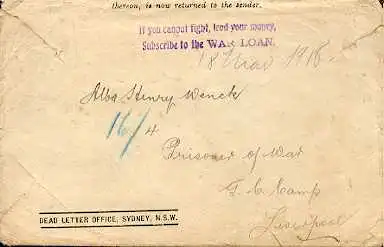 thereon, is now returned to the sender.
If you cannot fight, lend your money,
Subscribe to the WAR LOAN.
18 1918
Alba Henry Wenck
16/4
Prisoner of War
Camp
Liverpool
DEAD LETTER OFFICE, SYDNEY, N.S.W.